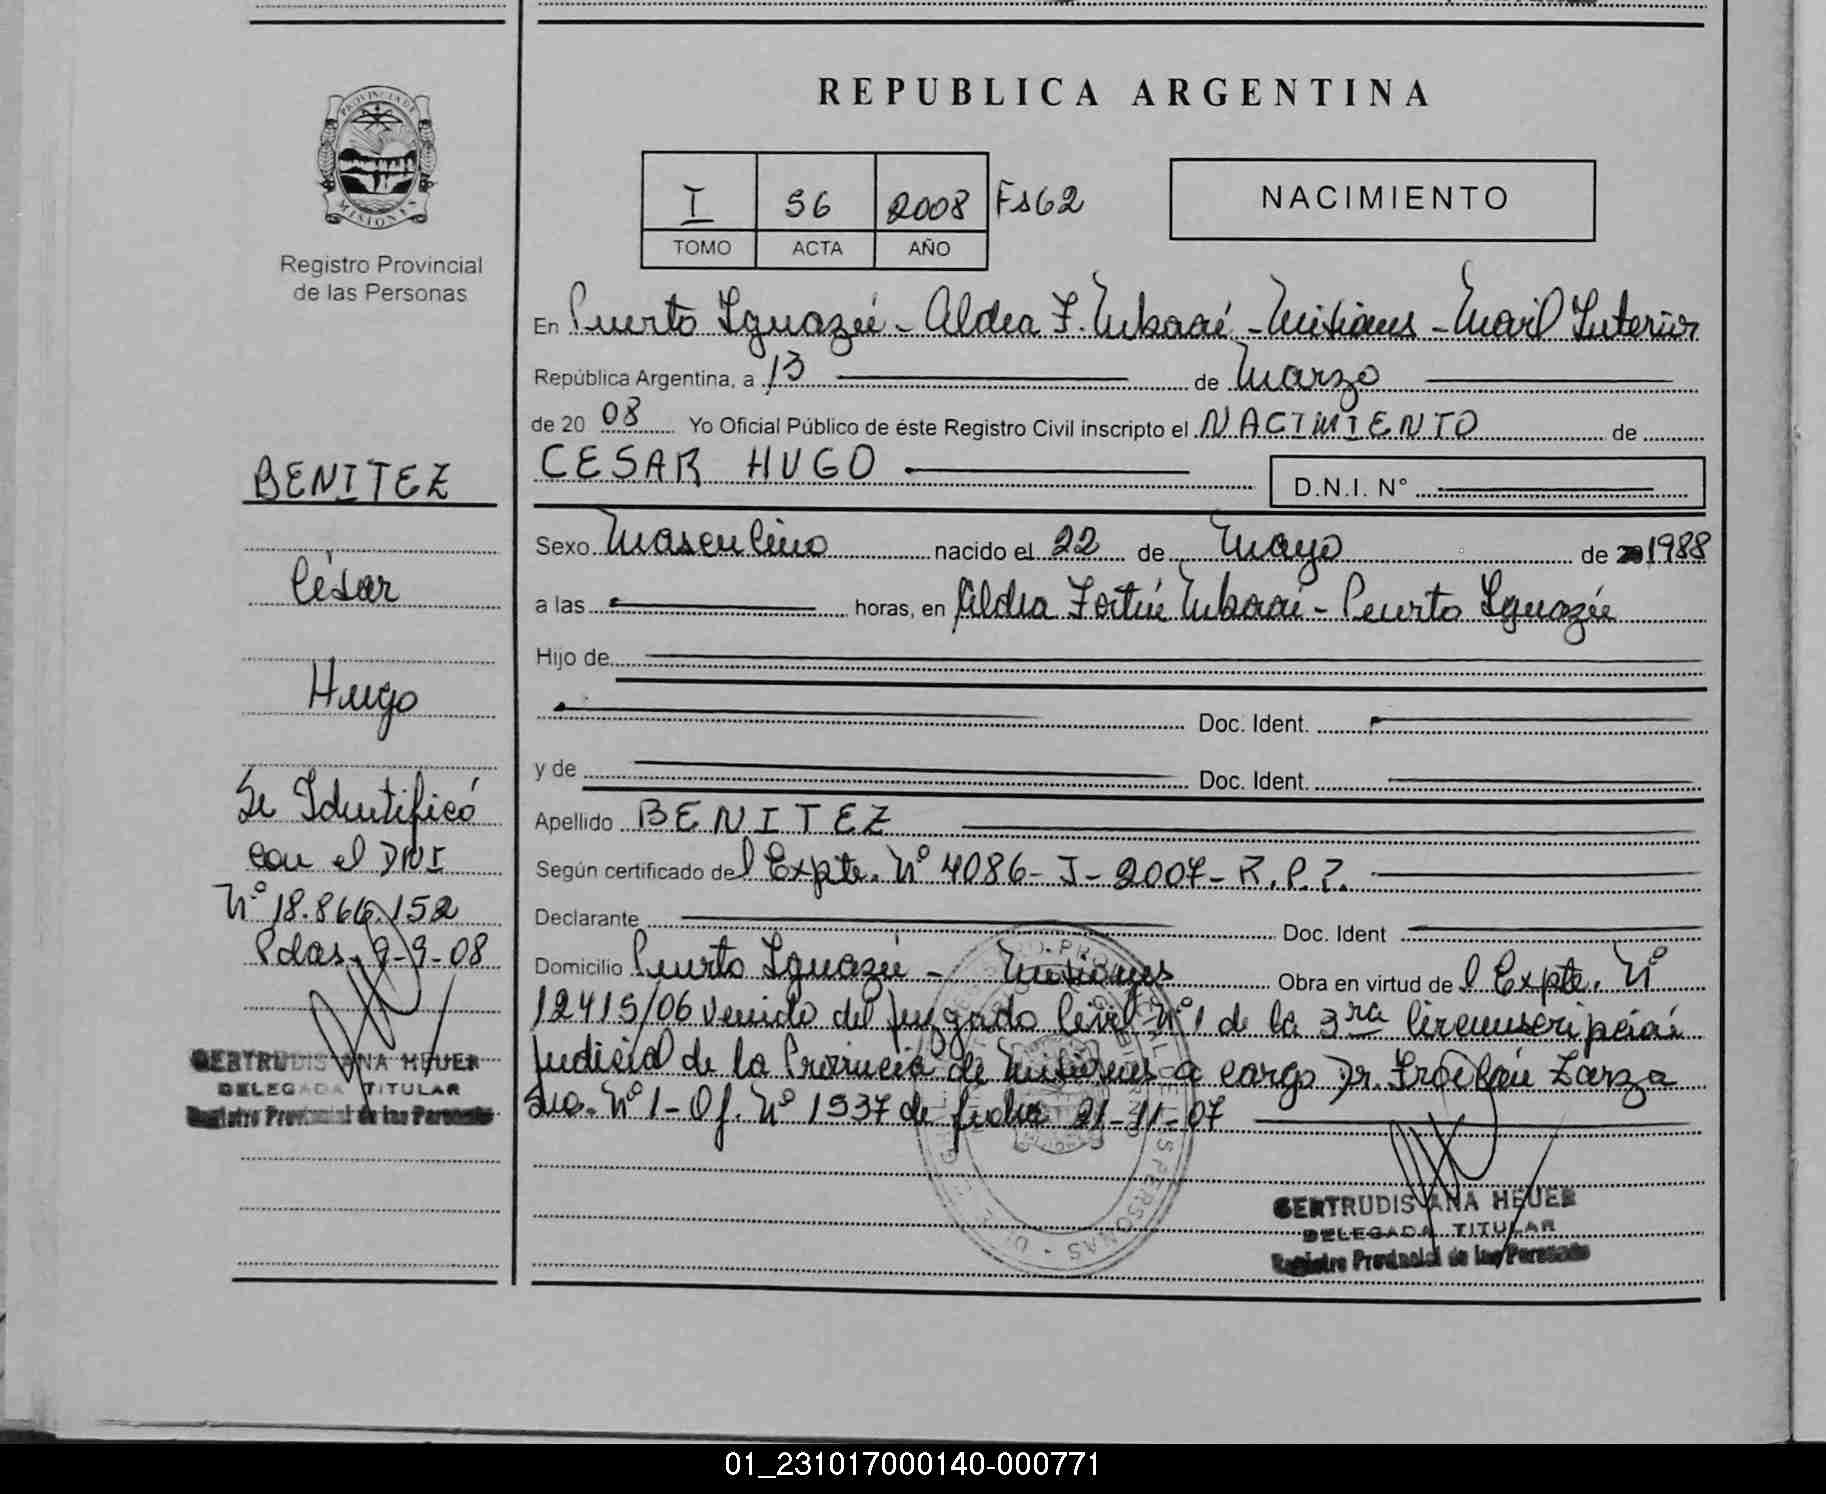 REPUBLICA ARGENTINA
PROVINCIA DE
MISIONES
Registro Provincial
de las Personas
I 56 2008 Fs 62
TOMO ACTA AÑO
NACIMIENTO
En Puerto Iguazú - Aldea F. Mbororé - Misiones - Movil Interior
República Argentina, a 13 de Marzo
de 20 08 Yo Oficial Público de éste Registro Civil inscripto el NACIMIENTO de
CESAR HUGO D.N.I. N°
Sexo Masculino nacido el 22 de Mayo de 1988
a las horas, en Aldea Fortín Mbororé - Puerto Iguazú
Hijo de
Doc. Ident.
y de Doc. Ident.
Apellido BENITEZ
Según certificado del Expte. N° 4086 - J - 2007 - R.P.P.
Declarante Doc. Ident
Domicilio Puerto Iguazú - Misiones Obra en virtud del Expte. N°
12415/06 venido del Juzgado Civil N°1 de la 3ra Circunscripción
Judicial de la Provincia de Misiones a cargo Dr. Froilán Zarza
N° 1 - Of. N° 1537 de fecha 21-11-07
GERTRUDIS ANA HEUER
DELEGADA TITULAR
Registro Provincial de las Personas
BENITEZ
César
Hugo
Se Identificó
con el DNI
N° 18.866.152
Pdas. 9-9-08
GERTRUDIS ANA HEUER
DELEGADA TITULAR
Registro Provincial de las Personas
01_231017000140-000771